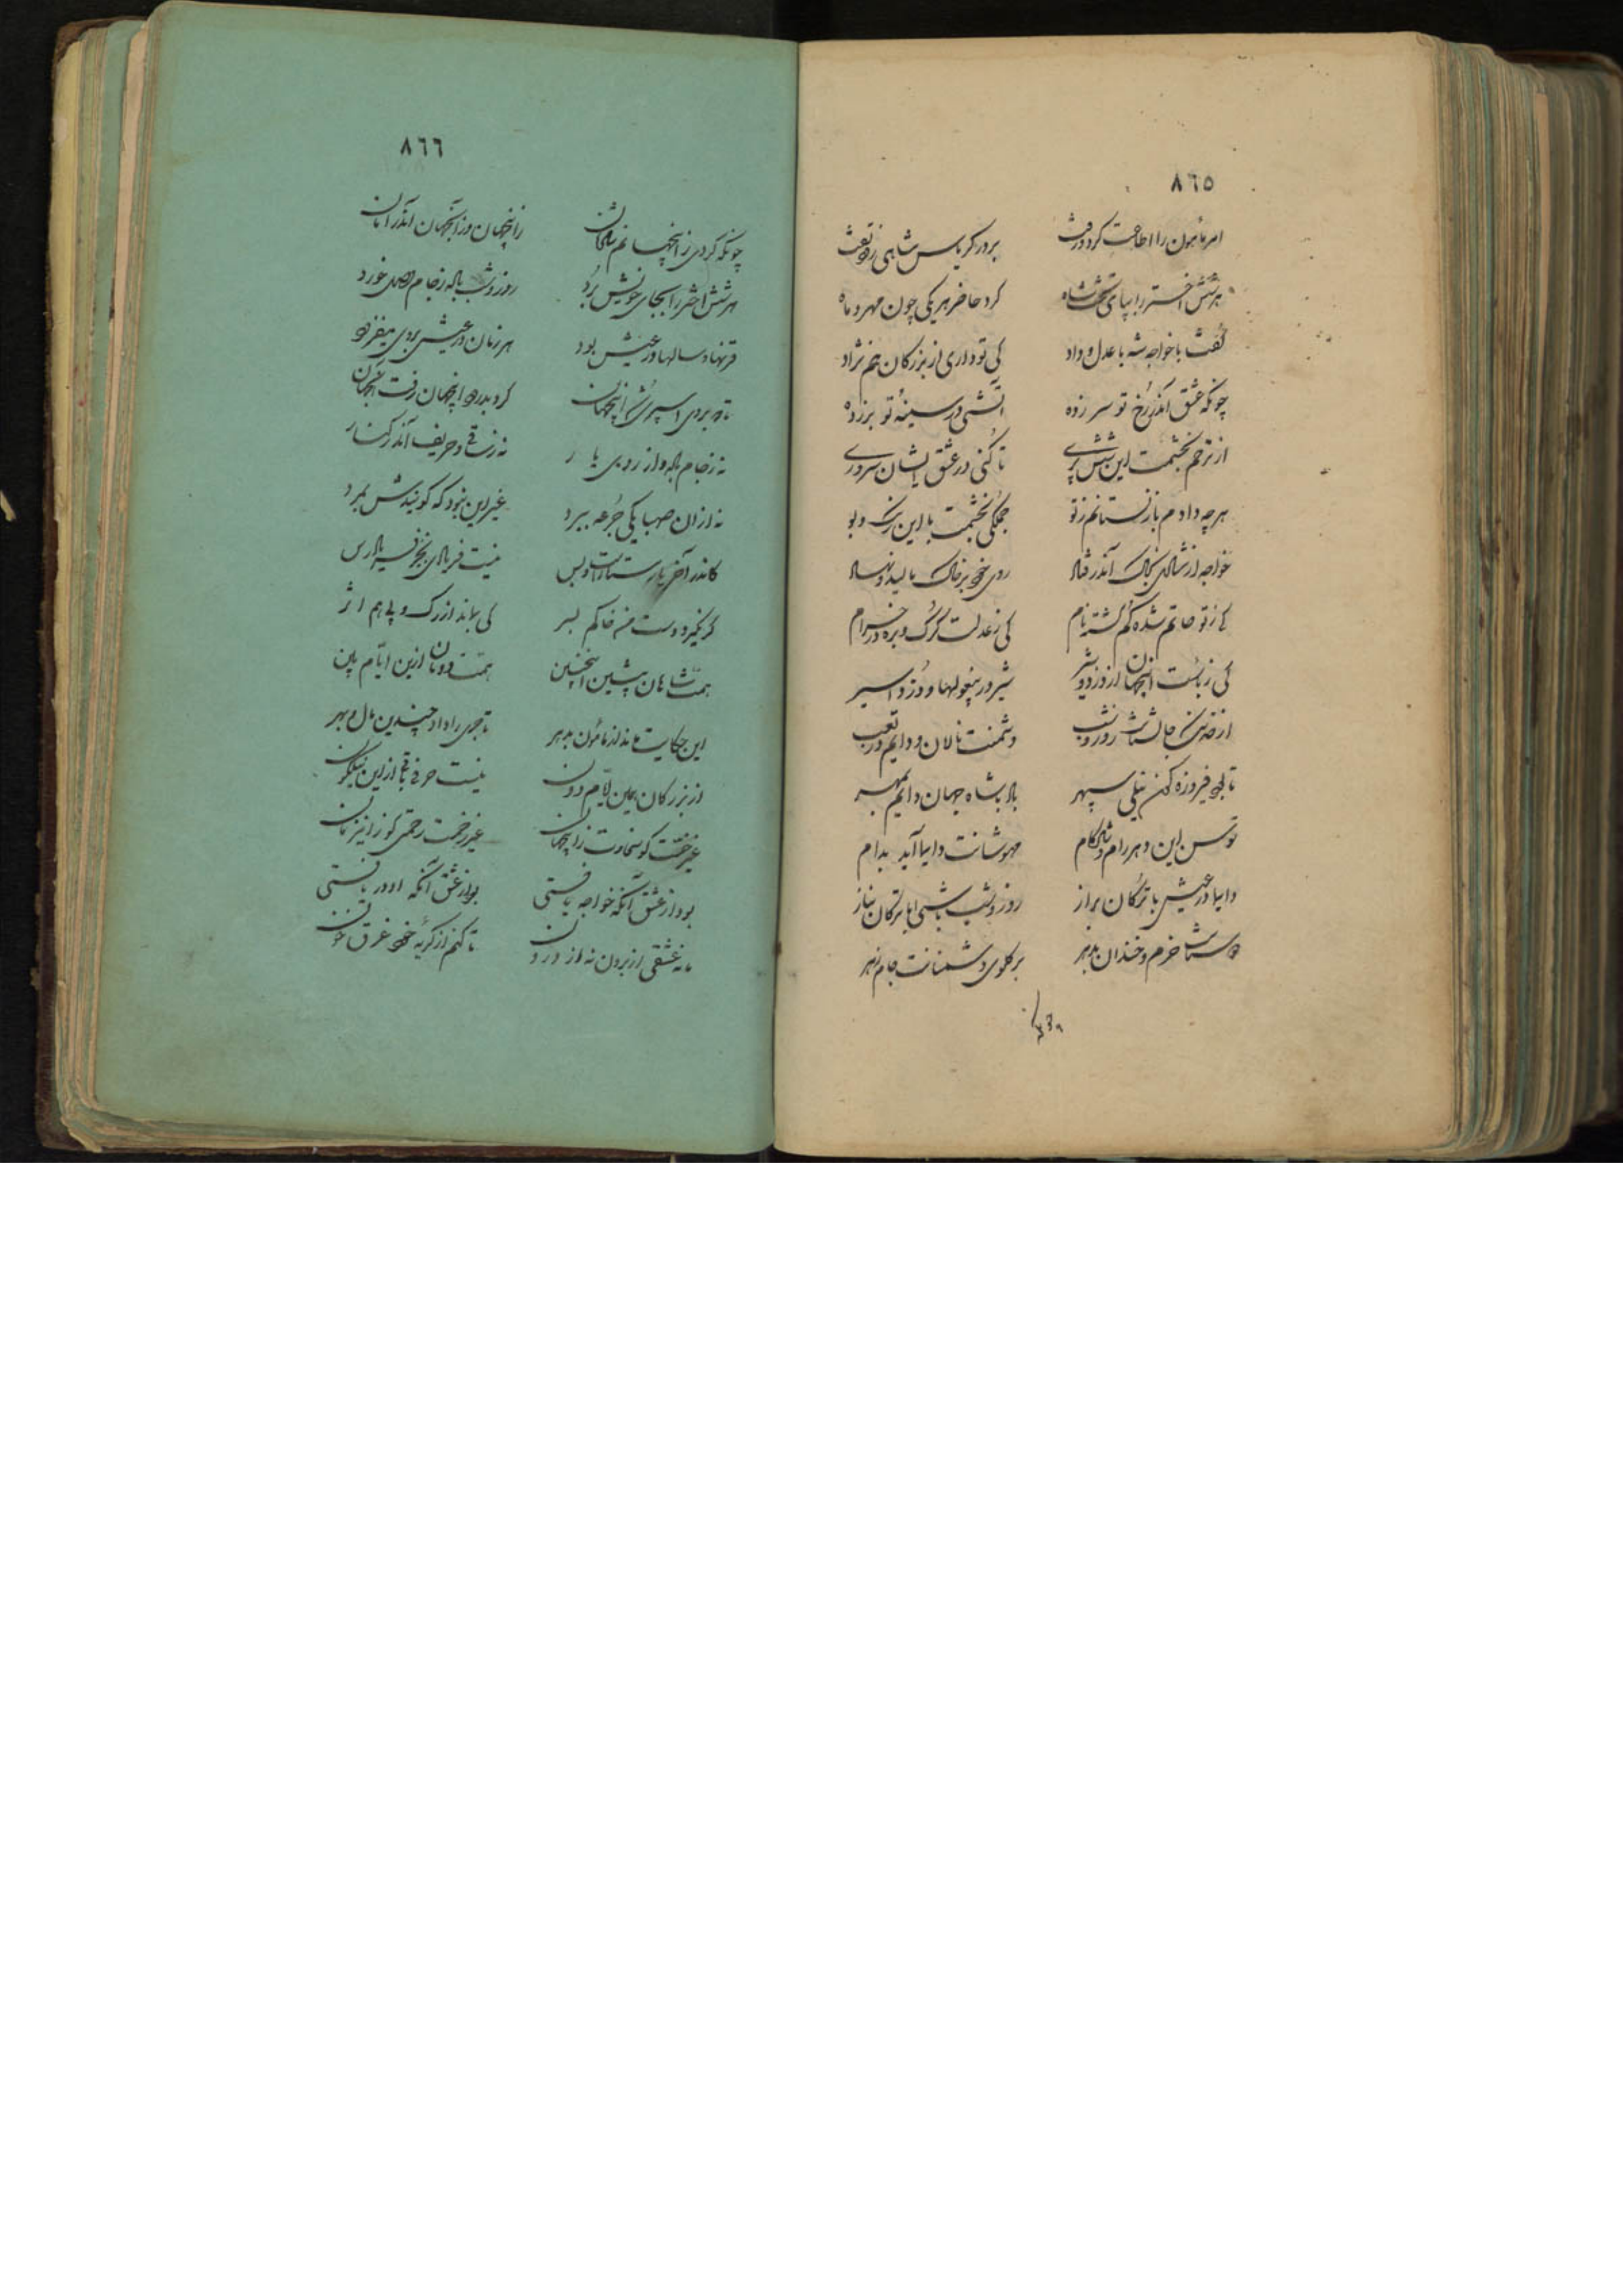 ٨٦٥
امر مأمون را اطاعت کرد و رفت برور کریاس شاهی
هر شش اختر را بپای تخت شاه کرد حاضر هر یکی چون مهر و ماه
گفت با خواجه شه با عدل و داد کی تو داری از بزرگان هم نژاد
چونکه عشق اندر رخ تو سر زده آتشی در سینهٔ تو بر زده
از ترحم بخشمت این شش پری تا کنی در عشق ایشان سروری
هرچه دادم باز نستانم ز تو جملگی بخشمت با این رنگ و بو
خواجه از شادی بخاک اندر فتاد روی خود بر خاک مالید و نهاد
کی ز تو حاتم شده گم گشته نام کی ز عدلت گرگ و بره در خرام
کی ز بأست اینجهان از دزد و شیر شیر در بیغولها و دزد اسیر
دشمنت نالان و دایم در تعب
تا بود فیروزه گون نیلی سپهر باد با شاه جهان دایم بمهر
توسن این دهر رام و شادکام مهوشانت دایما آید بدام
دایما در عیش با ترکان براز روز و شب باشی ابا ترکان بناز
دوستانت خرم و خندان بدهر بر گلوی دشمنانت جام زهر
٨٦٦
چونکه کردی زینجهانم شادمان زاینجهان وز آنجهان اندر امان
هر شش اختر را بجای خویش برد روز و شب باده ز جام وصل خورد
قرنها و سالها در عیش بود هر زمان در عیش بودی میفزود
کرد بدرود اینجهان رفت آنجهان
نه ز جام باده و از روی یار نه ز ساقی و حریف اندر کنار
نه از آن صهبا یکی جرعه ببرد غیر این نبود که گویندش بمرد
کاندر آخر یار ستار است و بس نیست فریادی بجز فریادرس
گر نگیرد دست من خاکم بسر کی بماند از رگ و پی هم اثر
همت شاهان پیشین اینچنین همت دونان ازین ایام بین
این حکایت ماند از مأمون بدهر تاجری را داد چندین مال و بهر
از بزرگان همین ایام دون نیست حرفی باقی از این نیلگون
غیر خست کو سخاوت زاینجهان غیر زحمت رحمتی کو زاین زمان
بود از عشق آنکه خواجه یافتی بود از عشق آنکه او دریافتی
نه عشقی از برون نه از درون تا کنم از گریه خود غرق خون